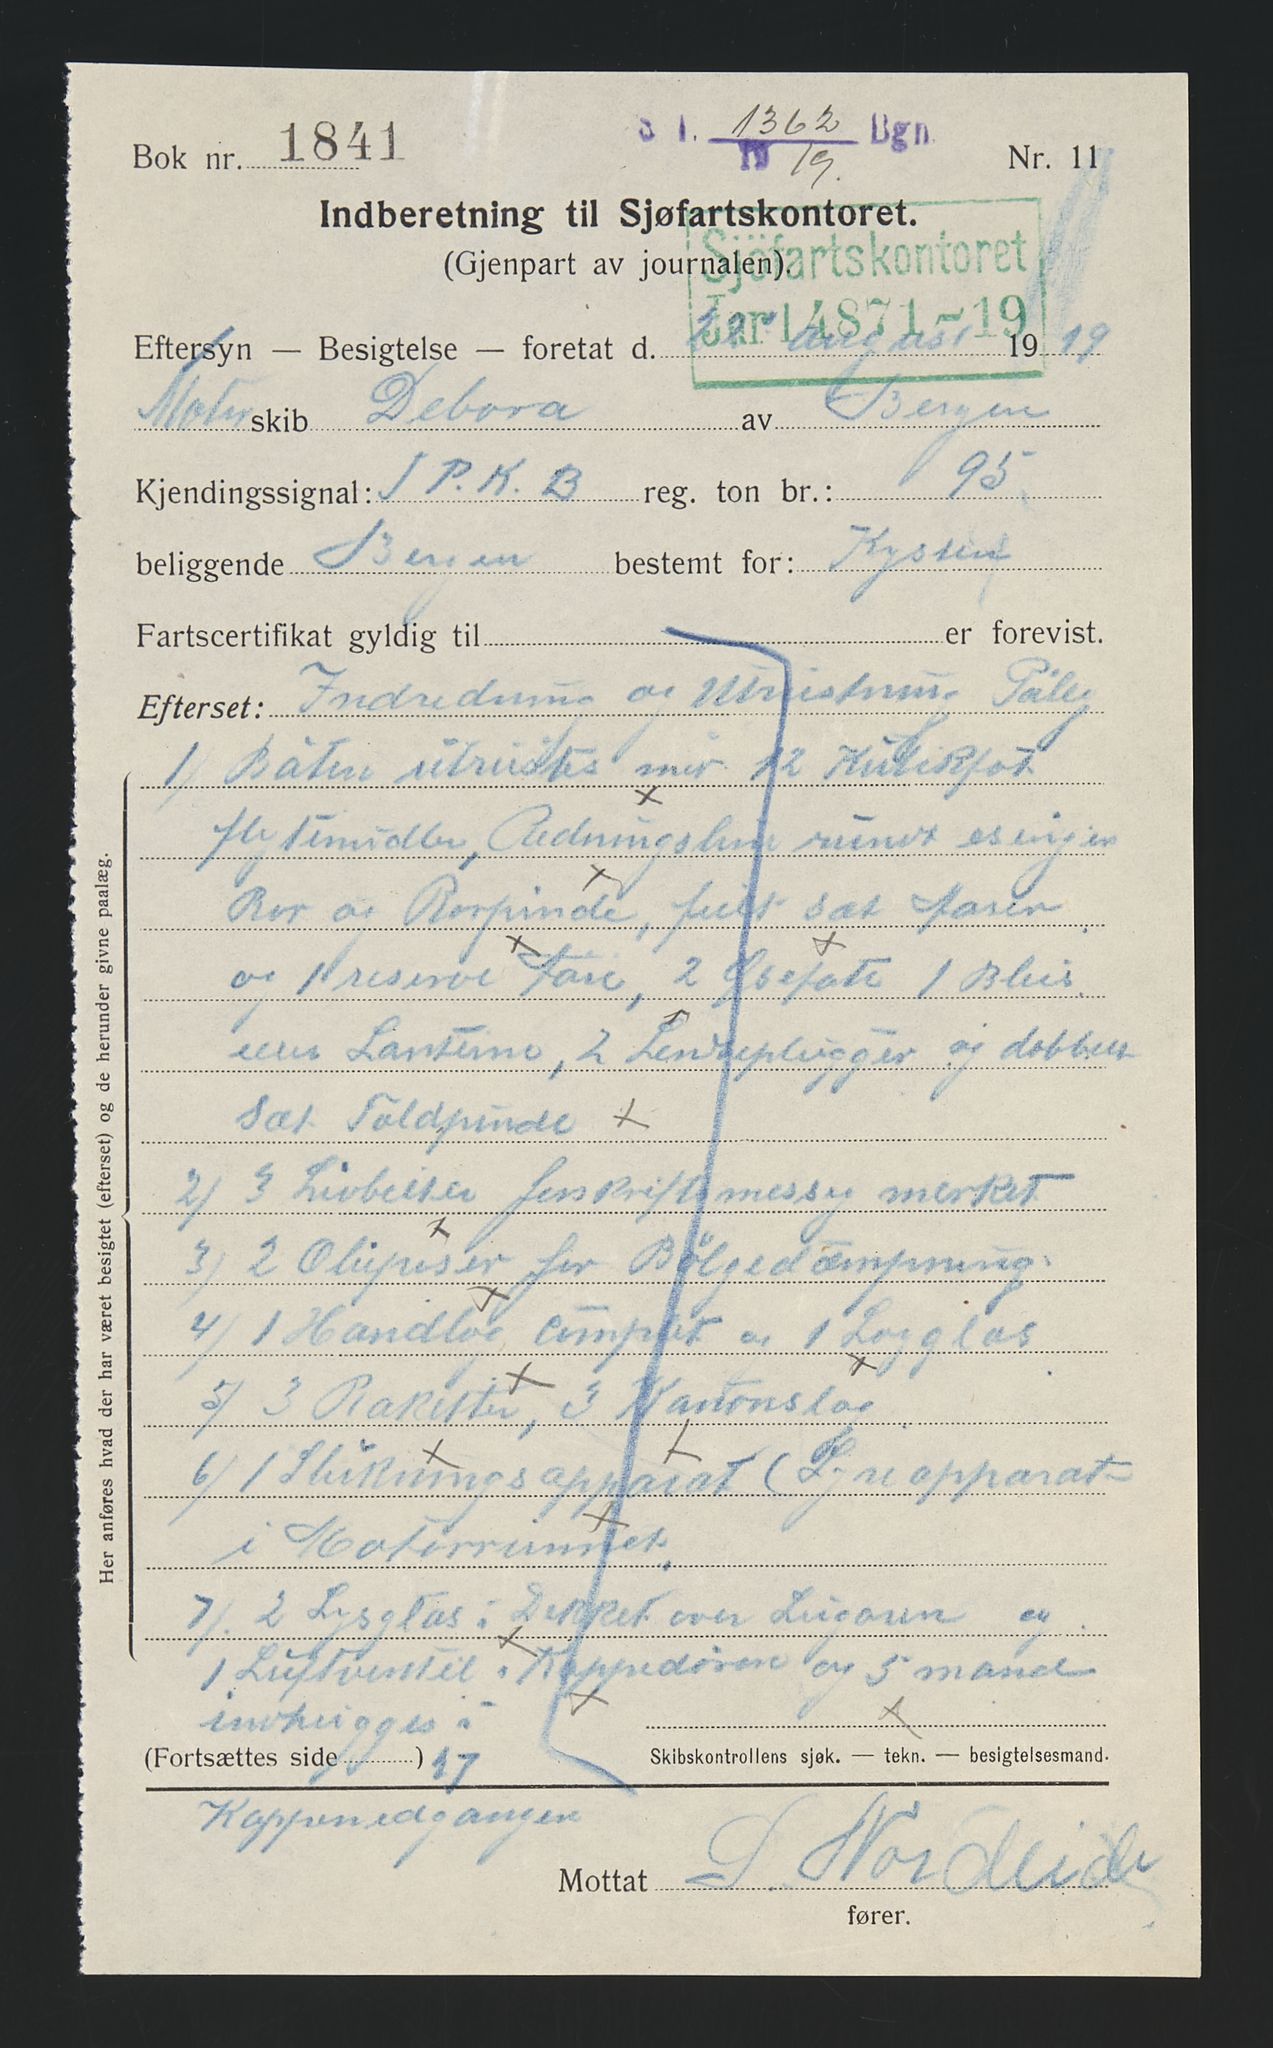 Bok nr. 1841
S I. 1362 Bgn.
19 19.
Nr. 11
Indberetning til Sjøfartskontoret.
(Gjenpart av journalen).
Sjöfartskontoret
Jnr 14871-19
Eftersyn — Besigtelse — foretat d. august 1919
Motor skib Debora av Bergen
Kjendingssignal: P. K. B reg. ton br.: 95
beliggende Bergen bestemt for: Kysten
Fartscertifikat gyldig til er forevist.
Efterset: Indredning og Utrustning Pålæg
Her anføres hvad der har været besigtet (efterset) og de herunder givne paalæg.
1) Båten utrustes 12 Kubikfot
flytemidler, Redningsline rundt esingen
Ror og Rorpinde, fuldt sæt årer
og 1 reserve åre, 2 Øsefate 1 Blus
Lanterne, 2 Lenseplugger og dobbelt
sæt Toldpinde
2) 3 Livbeiser forskriftsmessig merket
3) 2 Olieposer for Bölgedæmpning
4) 1 Handlog complet og 1 Logglas
5) 3 Raketter, 3 Kanonslag
6) 1 Slukningsapparat (Lyn apparat
i Motorrummet.
7). 2 Lysglas i Dekket over Lugaren og
1 Luftventil i Kappedören og 5 mand
indhugges i
(Fortsættes side ) 37
Skibskontrollens sjøk. — tekn. — besigtelsesmand.
Kappenedgangen
Mottat S. Nordeide
fører.